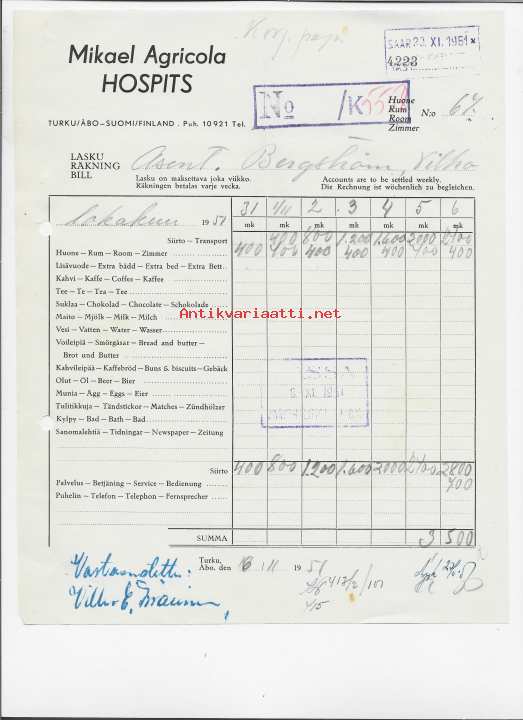 Korj. paja
SAAP. 23. XI. 1951
4223
Mikael Agricola
HOSPITS
No /K
Huone
Rum
Room
Zimmer
N:o 67.
TURKU/ÅBO–SUOMI/FINLAND. Puh. 10921 Tel.
LASKU
RÄKNING
BILL
Asent. Bergström, Vilho
Lasku on maksettava joka viikko.
Räkningen betalas varje vecka.
Accounts are to be settled weekly.
Die Rechnung ist wöchentlich zu begleichen.
Lokakuu 1951 31 1/11 2 3 4 5 6
mk mk mk mk mk mk mk
Siirto – Transport 400 800 1.200 1.600 2000 2400
Huone – Rum – Room – Zimmer 400 400 400 400 400 400 400
Lisävuode – Extra bädd – Extra bed – Extra Bett
Kahvi – Kaffe – Coffee – Kaffee
Tee – Te – Tea – Tee
Suklaa – Chokolad – Chocolate – Schokolade
Antikvariaatti.net
Maito – Mjölk – Milk – Milch
Vesi – Vatten – Water – Wasser
Voileipiä – Smörgåsar – Bread and butter –
Brot und Butter
Kahvileipää – Kaffebröd – Buns & biscuits – Gebäck
Olut – Öl – Beer – Bier
Munia – Ägg – Eggs – Eier
Tulitikkuja – Tändstickor – Matches – Zündhölzer
Kylpy – Bad – Bath – Bad
Sanomalehtiä – Tidningar – Newspaper – Zeitung
XI. 1951
Siirto 400 800 1.200 1.600 2000 2400 2800
Palvelus – Betjäning – Service – Bedienung 700
Puhelin – Telefon – Telephon – Fernsprecher
SUMMA 3 500
Turku,
Åbo, den 6 / 11 1951
Vastaanotettu: